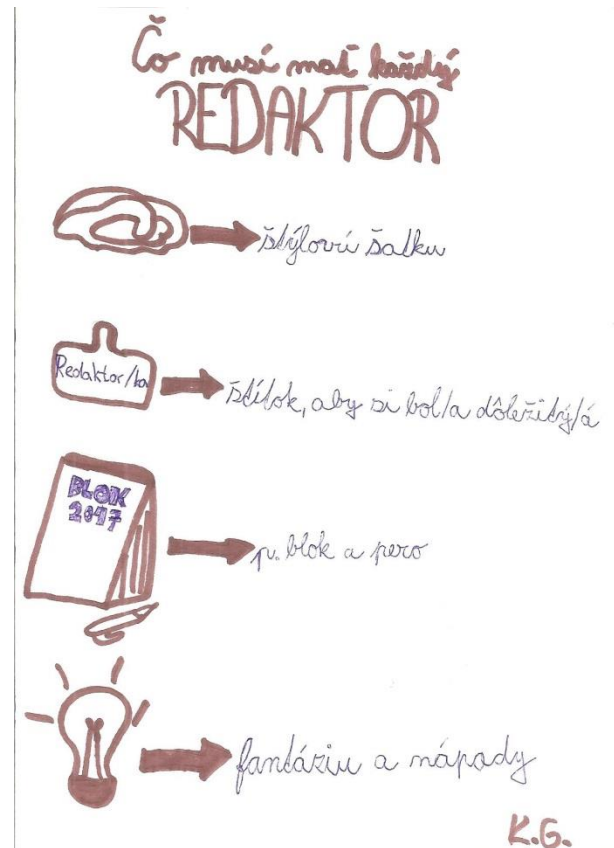 Čo musí mať každý
REDAKTOR
štýlovú šatku
Redaktor/ka
štítok, aby si bol/a dôležitý/á
BLOK
2017
p. blok a pero
fantáziu a nápady
K.G.